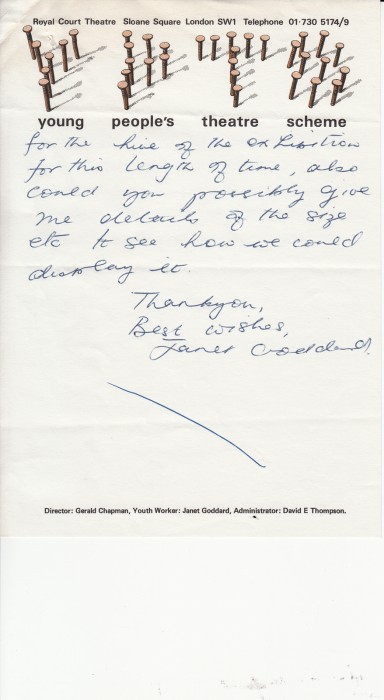 Royal Court Theatre Sloane Square London SW1 Telephone 01·730 5174/9
young people's theatre scheme
for the hire of the exhibition
for this length of time, also
could you possibly give
me details of the size
etc to see how we could
display it.
Thankyou,
Best wishes,
Janet Goddard.
Director: Gerald Chapman, Youth Worker: Janet Goddard, Administrator: David E Thompson.